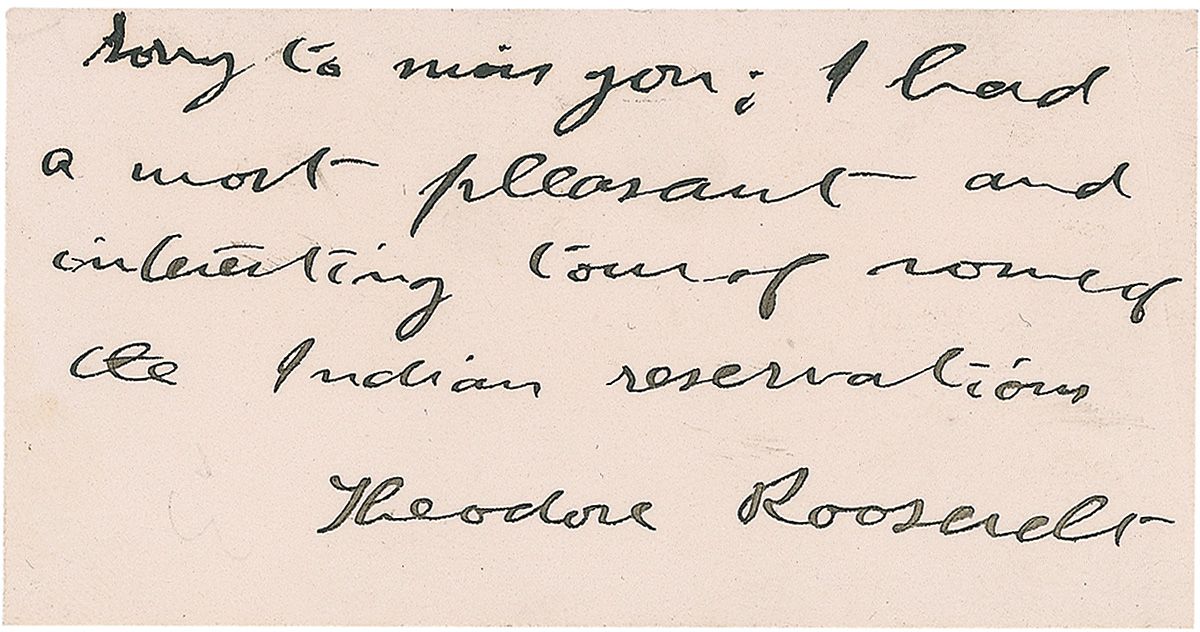 sorry to miss you; I had
a most pleasant and
interesting tour of some of
the Indian reservations
Theodore Roosevelt